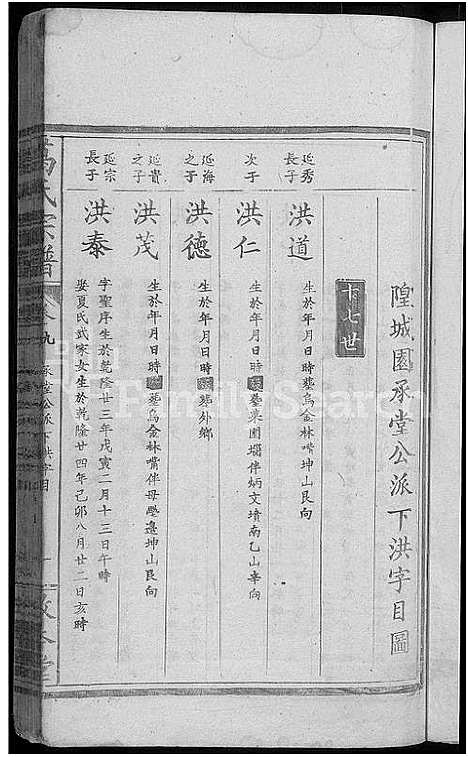 隍城園承堂公派下洪字目圖
十七世
延秀
長子
洪道
生於年月日時葬烏金林嘴坤山艮向
次子
洪仁
生於年月日時葬菜園堖伴炳文墳南乙山辛向
延海
之子
洪德
生於年月日時葬外鄉
延貴
之子
洪茂
生於年月日時葬烏金林嘴伴母塋邊坤山艮向
延宗
長子
洪泰
字聖序生於乾隆廿三年戊寅二月十三日午時
娶夏氏武家女生於乾隆廿四年己卯八月廿二日亥時
萬氏宗譜
卷九
承堂公派下洪字目
FamilySearch